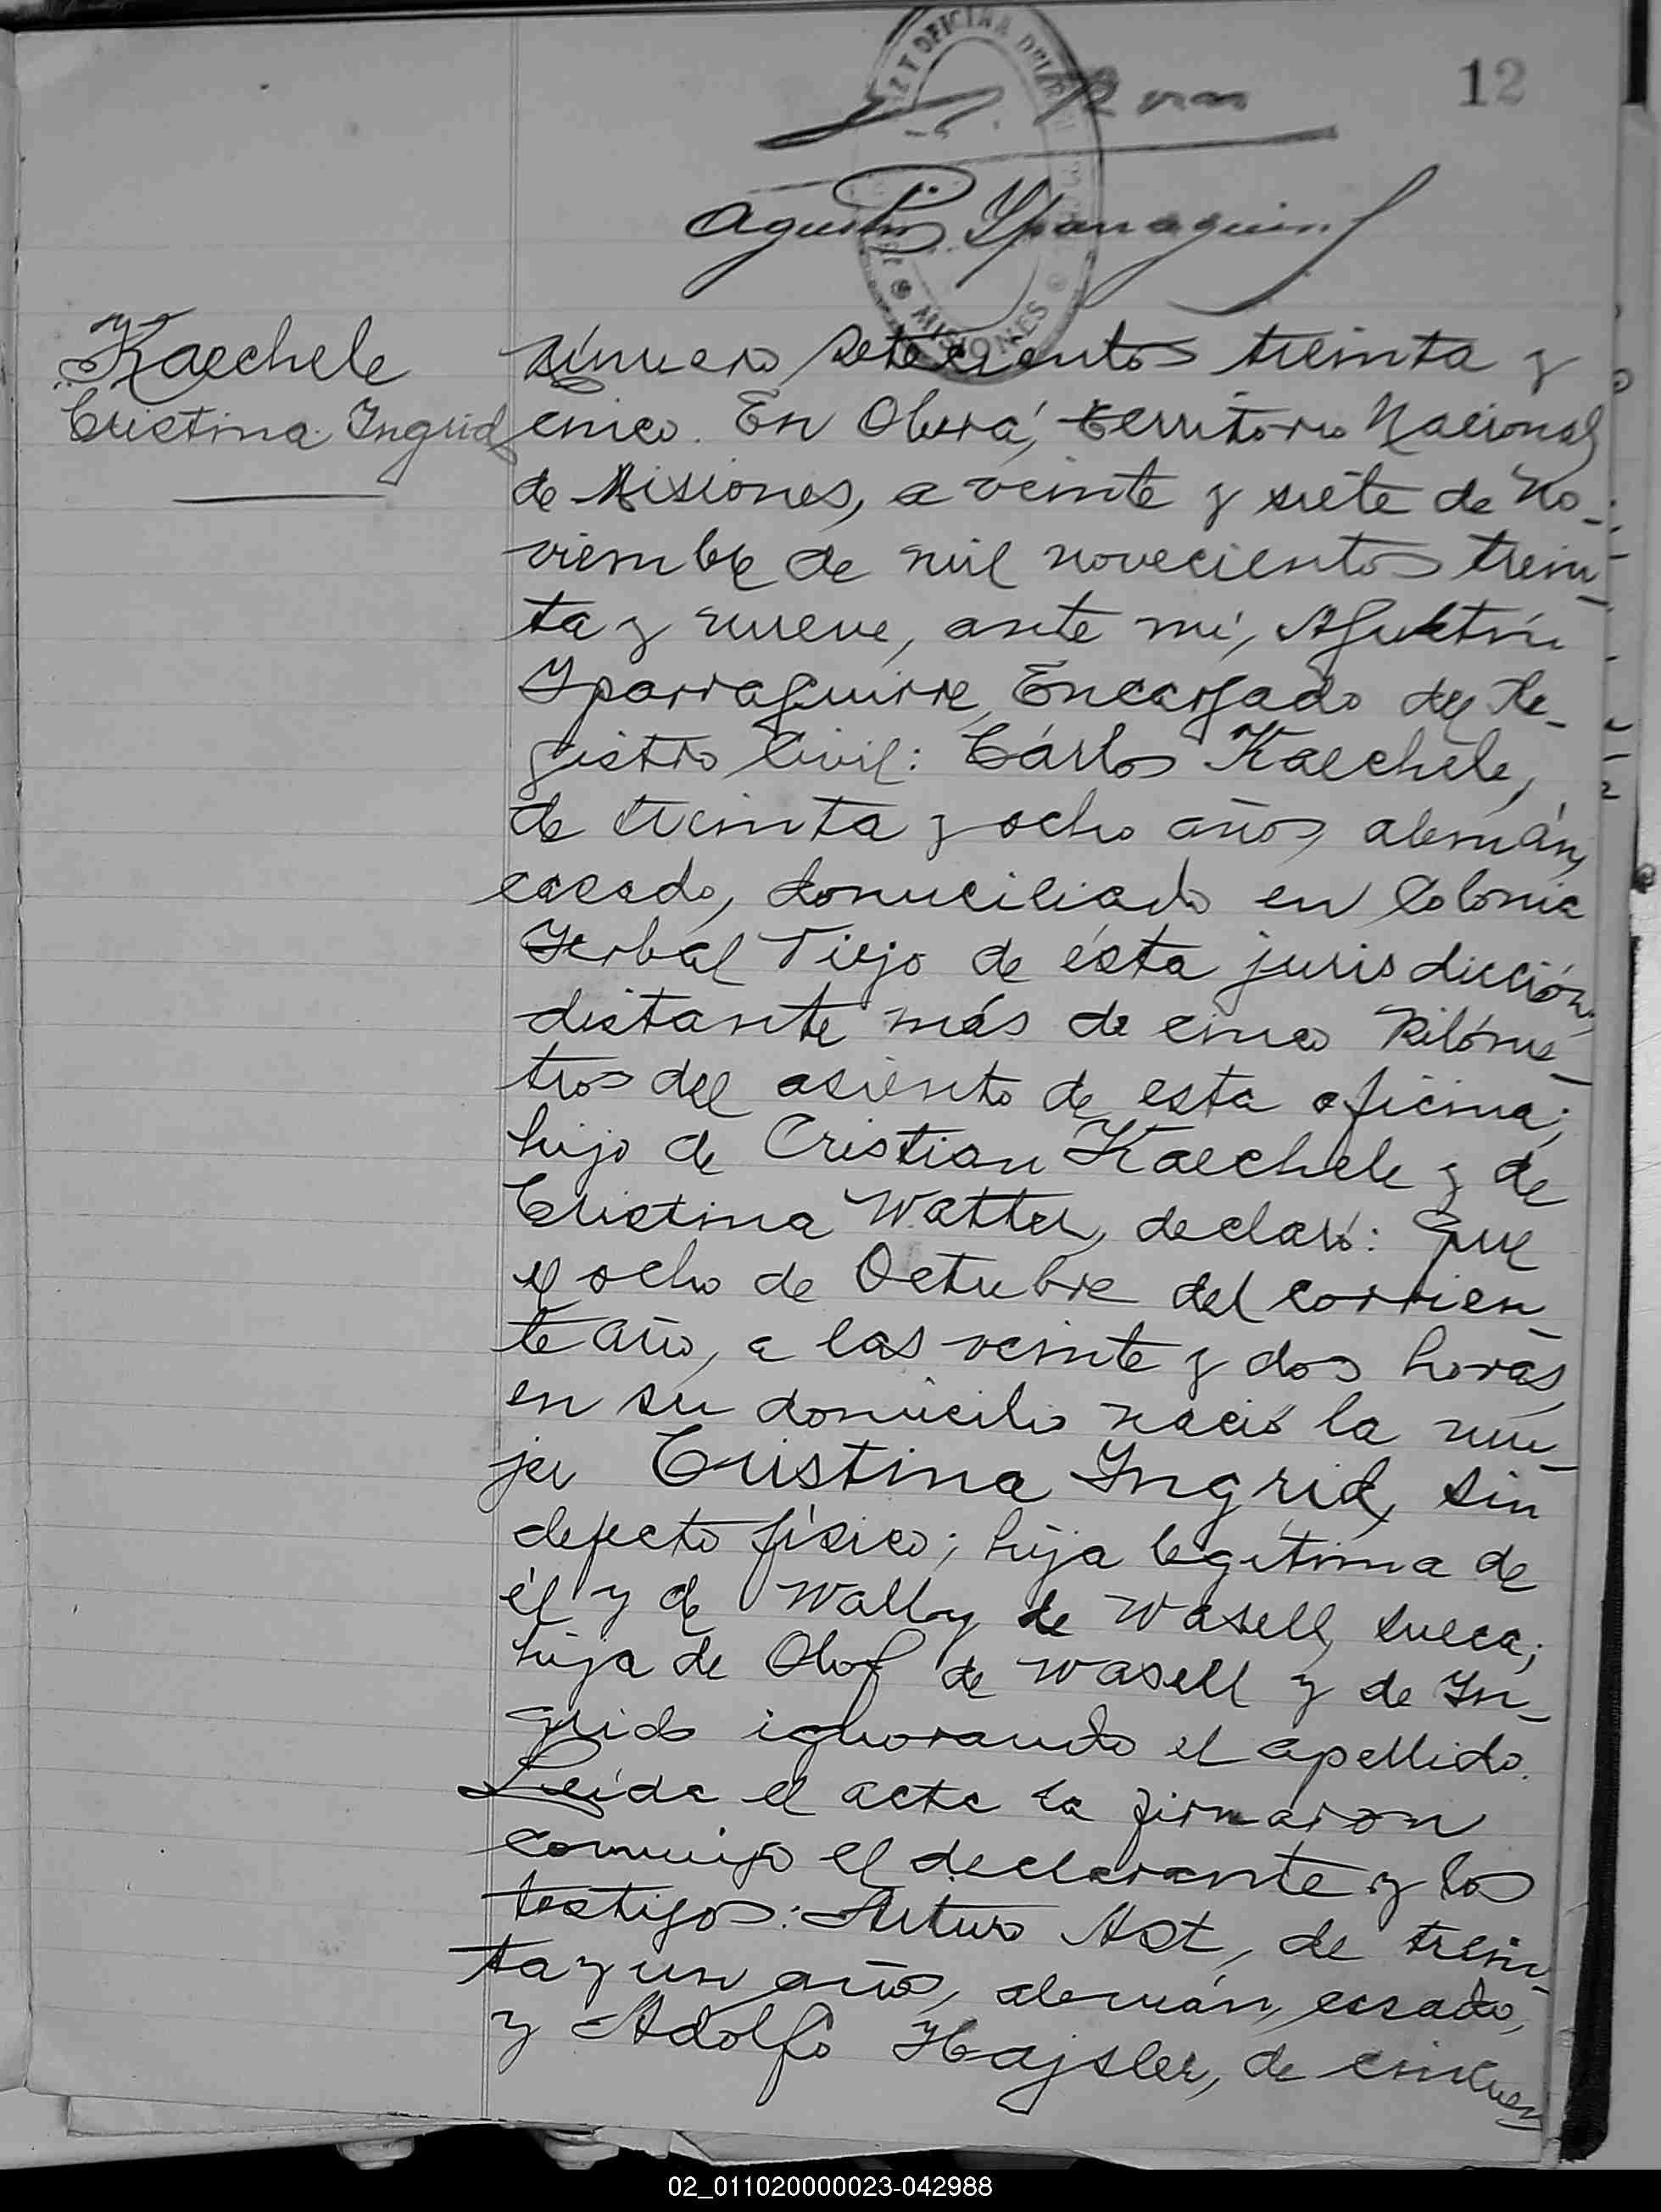 12
OFICINA
MISIONES
Agustin Yparraguirre
Kaechele
Cristina Ingrid
Número Setecientos treinta y
cinco. En Oberá, Territorio Nacional
de Misiones, a veinte y siete de No-
viembre de mil novecientos trein-
ta y nueve, ante mí, Agustín
Yparraguirre, Encargado del Re-
gistro Civil: Cárlos Kaechele,
de treinta y ocho años, alemán,
casado, domiciliado en Colonia
Yerbal Viejo de ésta jurisdicción,
distante más de cinco Kilóme-
tros del asiento de esta oficina;
hijo de Cristian Kaechele y de
Cristina Watter, declaró: Que
el ocho de Octubre del corrien-
te año, a las veinte y dos horas,
en su domicilio nació la mu-
jer Cristina Ingrid, sin
defecto físico; hija legítima de
él y de Wally de Wasell, sueca;
hija de Olof de Wasell y de In-
grid ignorando el apellido.
Leída el acta la firmaron
conmigo el declarante y los
testigos: Arturo Ast, de trein-
ta y un años, alemán, casado,
y Adolfo Hajsler, de cincuen
02_011020000023-042988